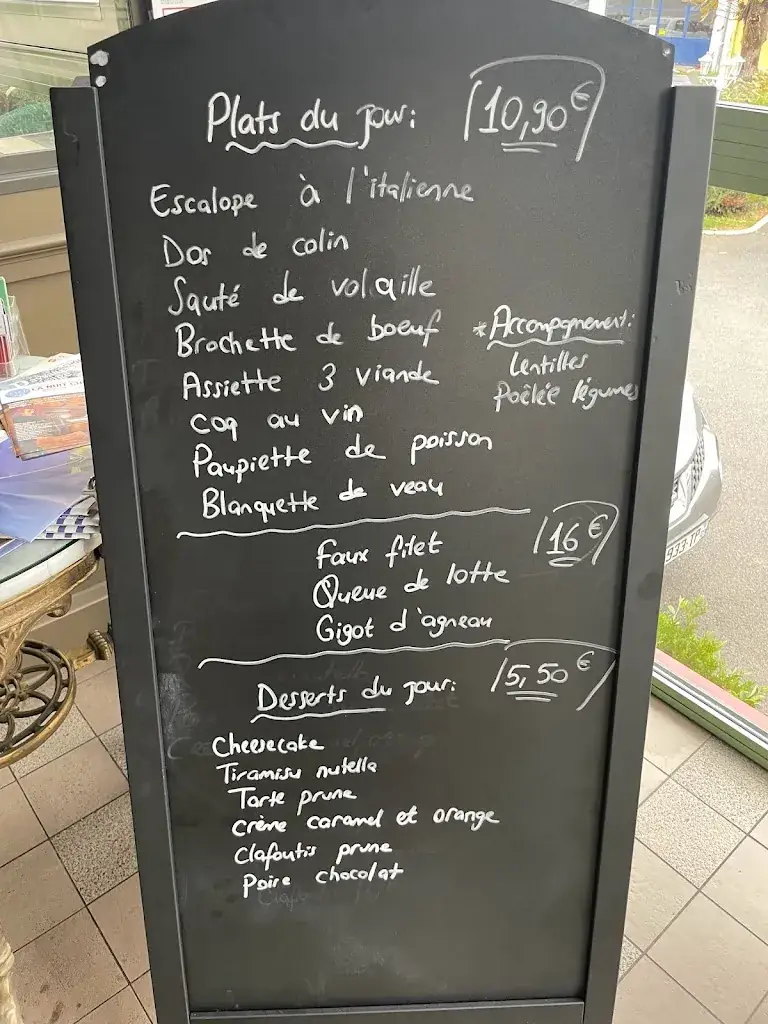 Plats du jour: 10,90€
Escalope à l'italienne
Dos de colin
Sauté de volaille
Brochette de boeuf
Assiette 3 viande
Coq au vin
Paupiette de poisson
Blanquette de veau
*Accompagnement:
Lentilles
Poêlée légumes
16€
Faux filet
Queue de lotte
Gigot d'agneau
Desserts du jour: 5,50€
Cheesecake
Tiramisu nutella
Tarte prune
Crème caramel et orange
Clafoutis prune
Poire chocolat